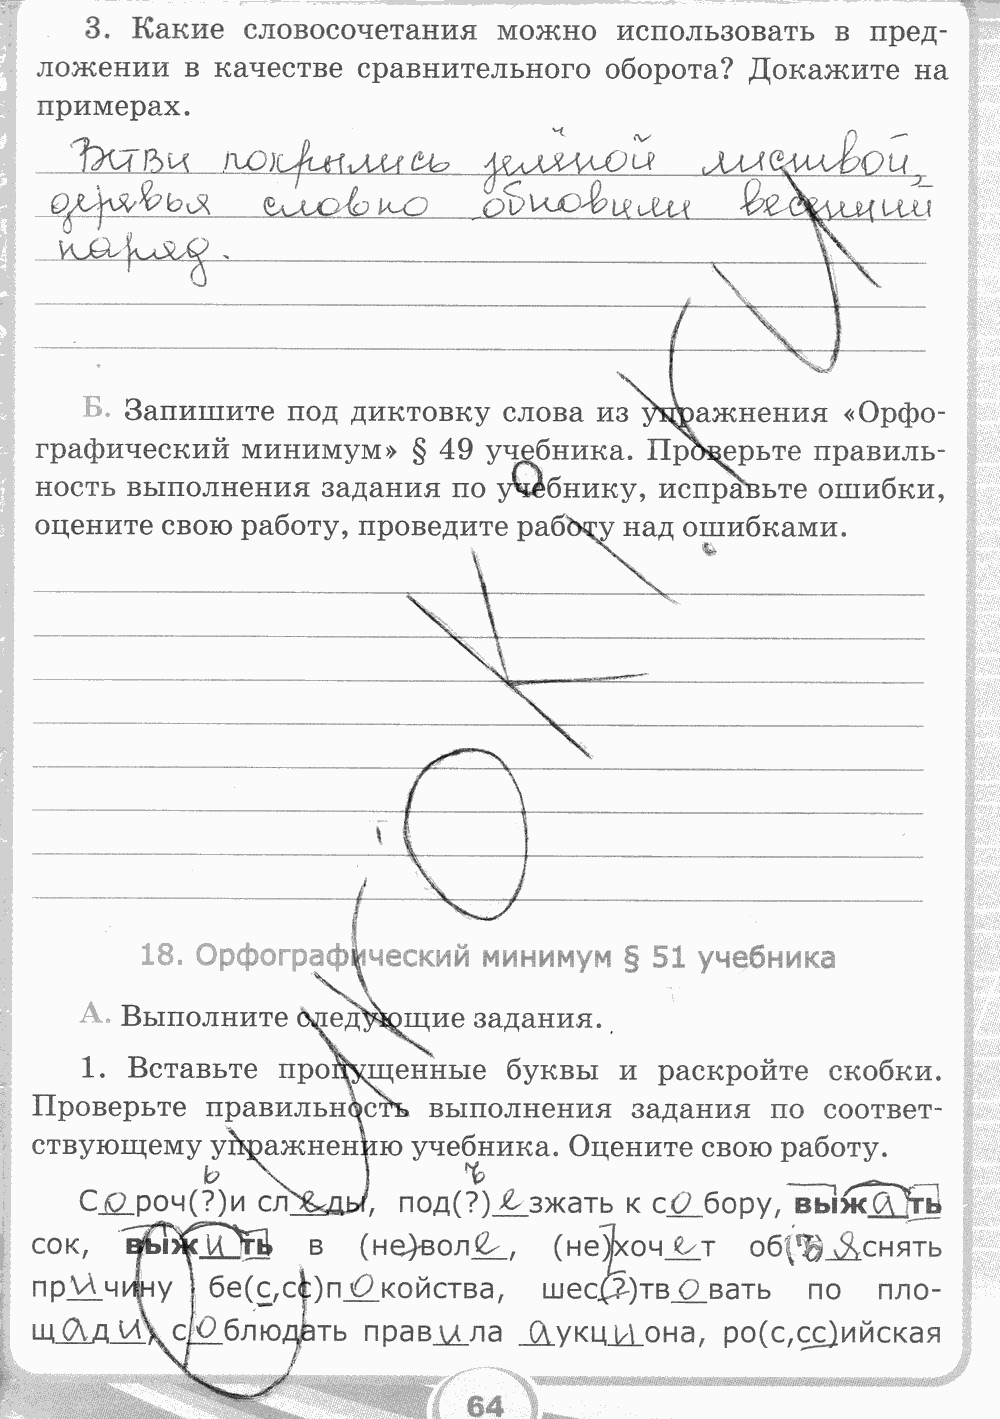 3. Какие словосочетания можно использовать в пред-
ложении в качестве сравнительного оборота? Докажите на
примерах.
Ветви покрылись зелёной листвой,
деревья словно обновили весенний
наряд.
Б. Запишите под диктовку слова из упражнения «Орфо-
графический минимум» § 49 учебника. Проверьте правиль-
ность выполнения задания по учебнику, исправьте ошибки,
оцените свою работу, проведите работу над ошибками.
18. Орфографический минимум § 51 учебника
А. Выполните следующие задания.
1. Вставьте пропущенные буквы и раскройте скобки.
Проверьте правильность выполнения задания по соответ-
ствующему упражнению учебника. Оцените свою работу.
ь ъ
Сороч(?)и следы, под(?)езжать к собору, выжать
сок, выжить в (не)воле, (не)хочет об(ъ)яснять
причину бе(с,сс)покойства, шес(?)твовать по пло-
щади, соблюдать правила аукциона, ро(с,сс)ийская
64